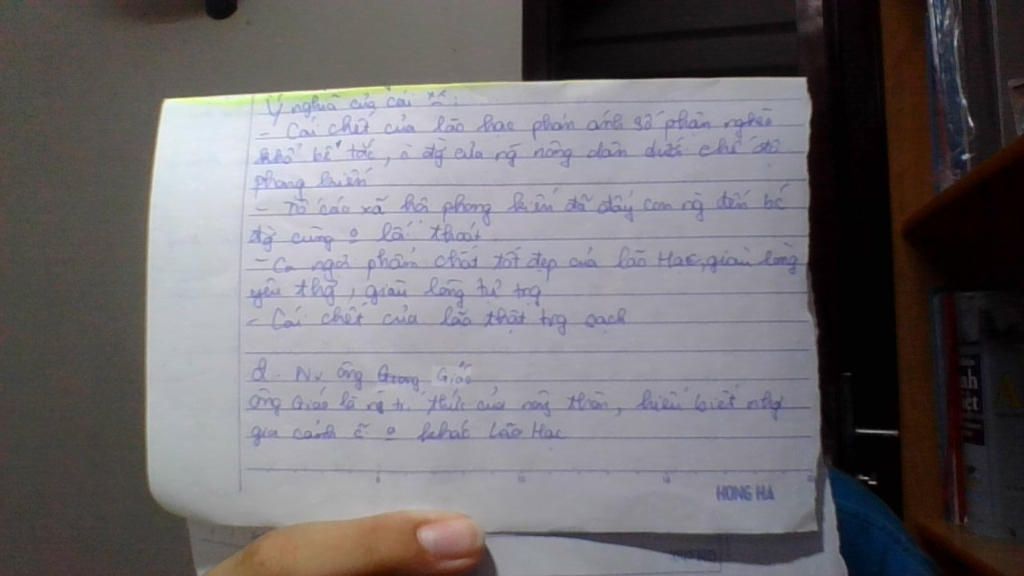 Ý nghĩa của cái
- Cái chết của lão hạc phản ánh số phận nghèo
khổ bế tắc, ở đợ của ng nông dân dưới chế độ
phong kiến
- Tố cáo xã hội phong kiến đã đẩy con ng đến bc
đg cùng o lối thoát
- Ca ngợi phẩm chất tốt đẹp của lão Hạc, giàu lòng
yêu thg, giàu lòng tự trg
- Cái chết của lão thật trg sạch
2. Nv ông Giáo
ông Giáo là ng tri thức của nông thôn, hiểu biết nhg
gia cảnh c̃ o khác Lão Hạc
HONG HA